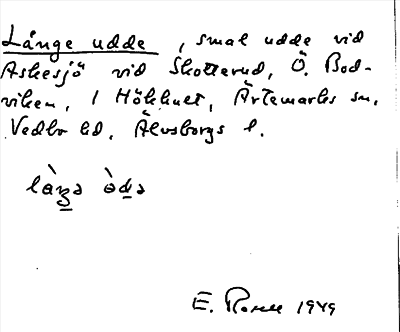 Långe udde, smal udde vid
Askesjö vid Skotterud, Ö. Bod-
viken, 1 Högkult, Ärtemarks sn,
Vedbo hd, Älvsborgs l.
E. Rosell 1949